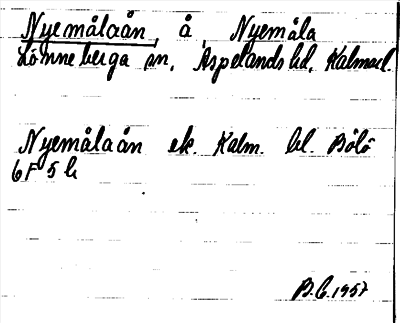 Nyemålaån, å, Nyemåla
Lönneberga sn, Aspelands hd, Kalmar l.
Nyemålaån ek. Kalm. bl. Bölö
6F 5h
B.C. 1957